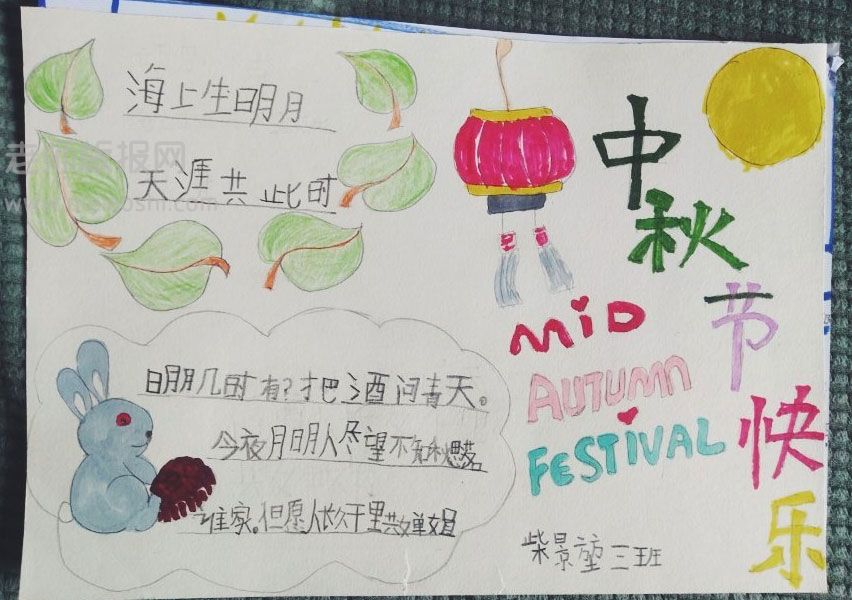 海上生明月
天涯共此时
中秋节快乐
MID
AUTUMN
FESTIVAL
明月几时有?把酒问青天。
今夜月明人尽望不知秋思落
谁家。但愿人长久千里共婵娟
三班